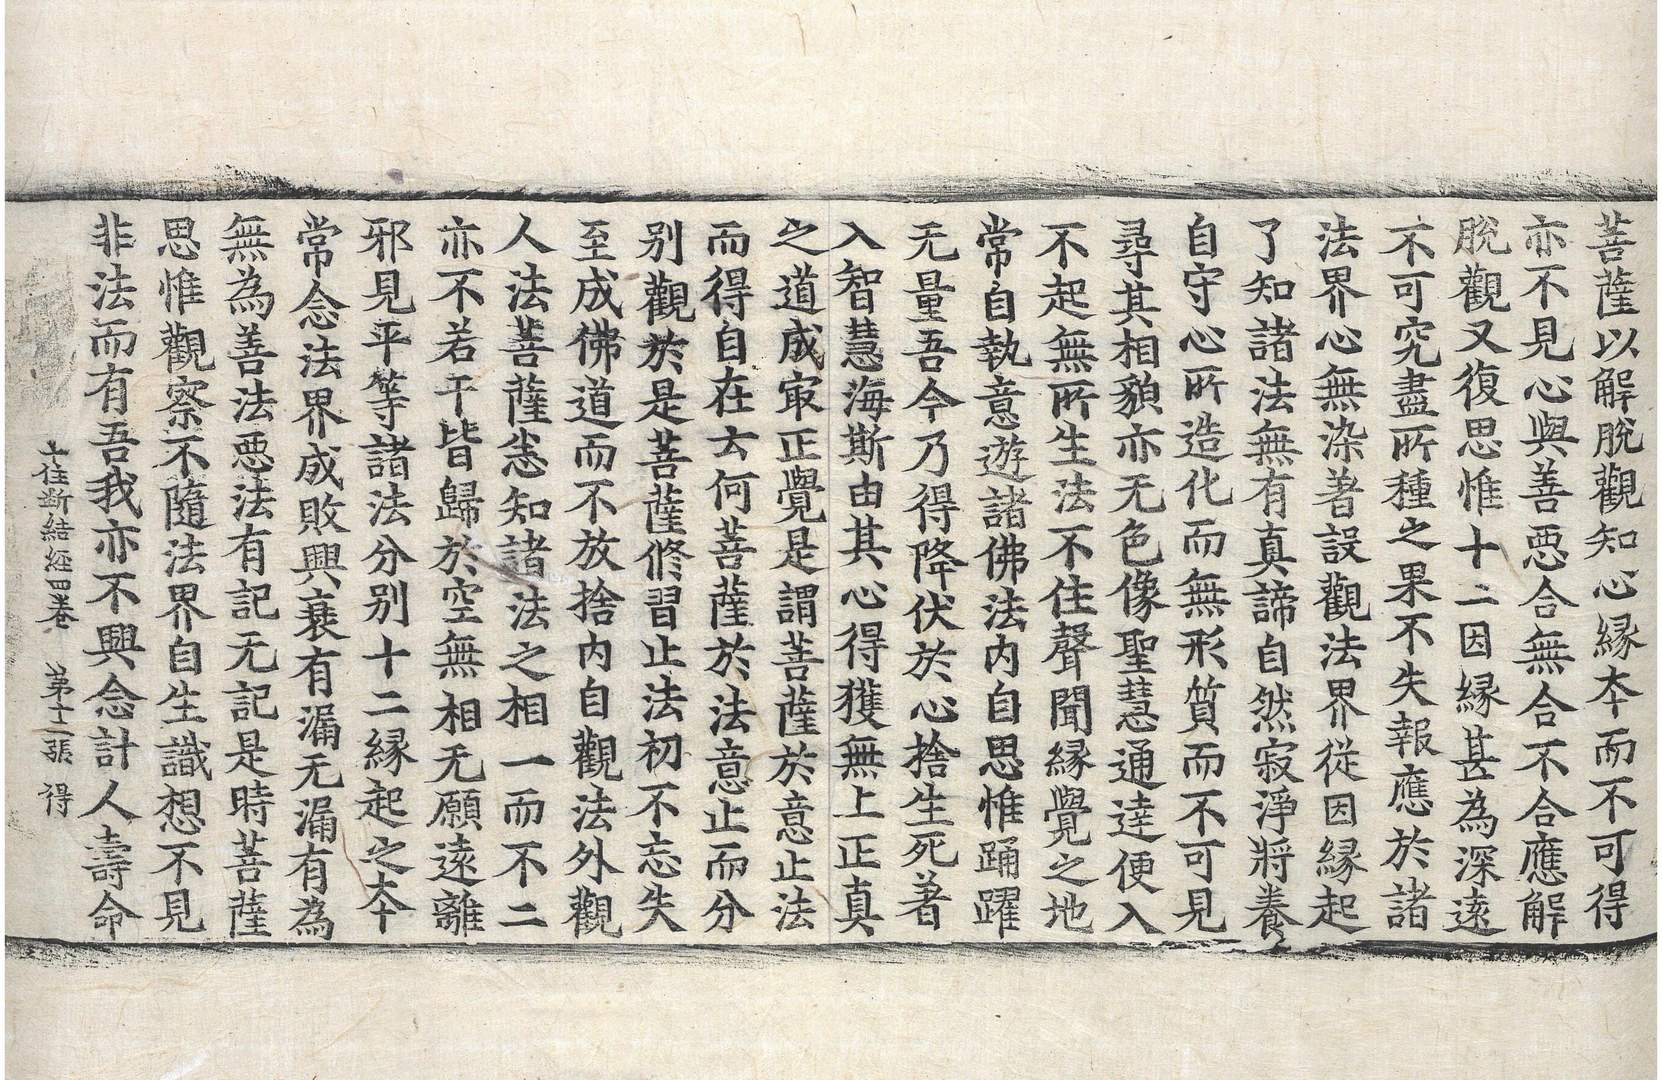 菩薩以解脫觀知心縁夲而不可得
亦不見心與善惡合無合不合應解
脫觀又復思惟十二因縁甚為深遠
不可究盡所種之果不失報應於諸
法界心無染著設觀法界從因縁起
了知諸法無有真諦自然寂淨將養
自守心所造化而無形質而不可見
尋其相貌亦无色像聖慧通達便入
不起無所生法不住聲聞縁覺之地
常自執意遊諸佛法內自思惟踊躍
无量吾今乃得降伏於心捨生死著
入智慧海斯由其心得獲無上正真
之道成㝡正覺是謂菩薩於意止法
而得自在云何菩薩於法意止而分
别觀於是菩薩修習止法初不忘失
至成佛道而不放捨内自觀法外觀
人法菩薩悉知諸法之相一而不二
亦不若干皆歸於空無相无願遠離
邪見平等諸法分别十二縁起之夲
常念法界成敗興衰有漏无漏有為
無為善法惡法有記无記是時菩薩
思惟觀察不隨法界自生識想不見
非法而有吾我亦不興念計人壽命
十住斷結經四卷 第十二張 得